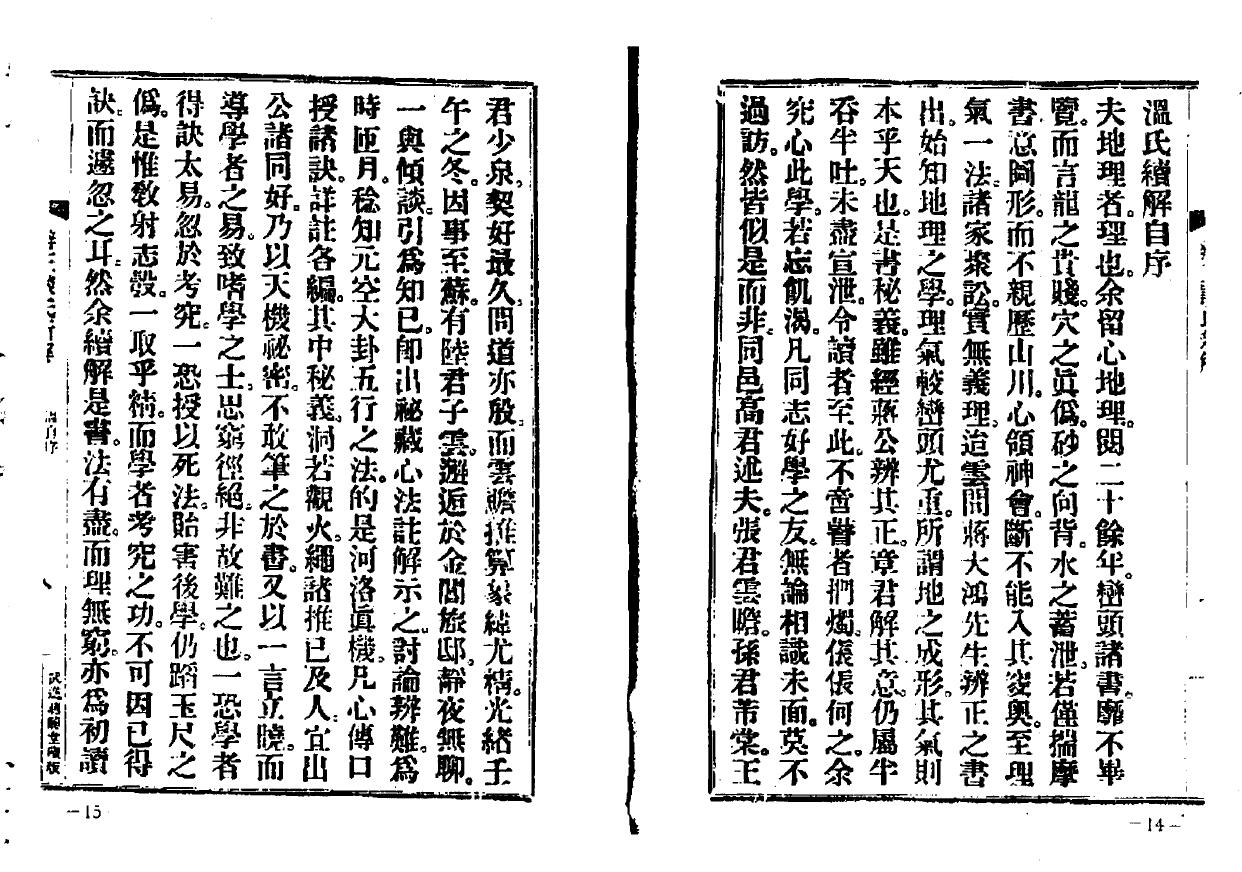 溫氏續解自序
夫地理者。理也。余留心地理。閱二十餘年。巒頭諸書。靡不畢
覽。而言龍之貴賤。穴之眞僞。砂之向背。水之蓄泄。若僅揣摩
書意圖形。而不親歷山川。心領神會。斷不能入其窔奧。至理
氣一法。諸家聚訟。實無義理。迨雲間蔣大鴻先生辨正之書
出。始知地理之學。理氣較巒頭尤重。所謂地之成形。其氣則
本乎天也。是書秘義。雖經蔣公辨其正。章君解其意。仍屬半
吞半吐。未盡宣泄。令讀者至此。不啻瞽者捫燭。倀倀何之。余
究心此學。若忘飢渴。凡同志好學之友。無論相識未面。莫不
過訪。然皆似是而非。同邑高君述夫。張君雲瞻。孫君芾棠。王
君少泉。契好最久。問道亦殷。而雲瞻推算象緯尤精。光緒壬
午之冬。因事至蘇。有陸君子雲。邂逅於金閶旅邸。靜夜無聊。
一與傾談。引爲知已。卽出祕藏心法註解示之。討論辨難。爲
時匝月。稔知元空大卦五行之法。的是河洛眞機。凡心傳口
授諸訣。詳註各編。其中秘義。洞若觀火。繩諸推已及人。宜出
公諸同好。乃以天機祕密。不敢筆之於書。又以一言立曉。而
導學者之易。致嗜學之士。思窮徑絕。非故難之也。一恐學者
得訣太易。忽於考究。一恐授以死法。貽害後學。仍蹈玉尺之
僞。是惟敎射志彀。一取乎精。而學者考究之功。不可因已得
訣而遽忽之耳。然余續解是書。法有盡。而理無窮。亦爲初讀
自序
—14—
—15